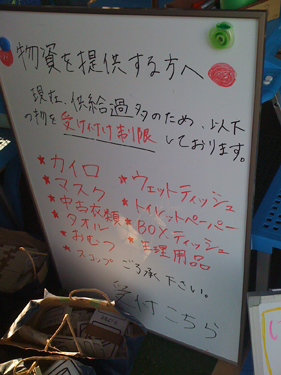 物資を提供する方へ
現在、供給過多のため、以下
の物を受け付け制限しております。
★カイロ ★ウェットティッシュ
★マスク ★トイレットペーパー
★中古衣類 ★BOXティッシュ
★タオル ★生理用品
★おむつ
★スコップ ご了承下さい。
受付こちら